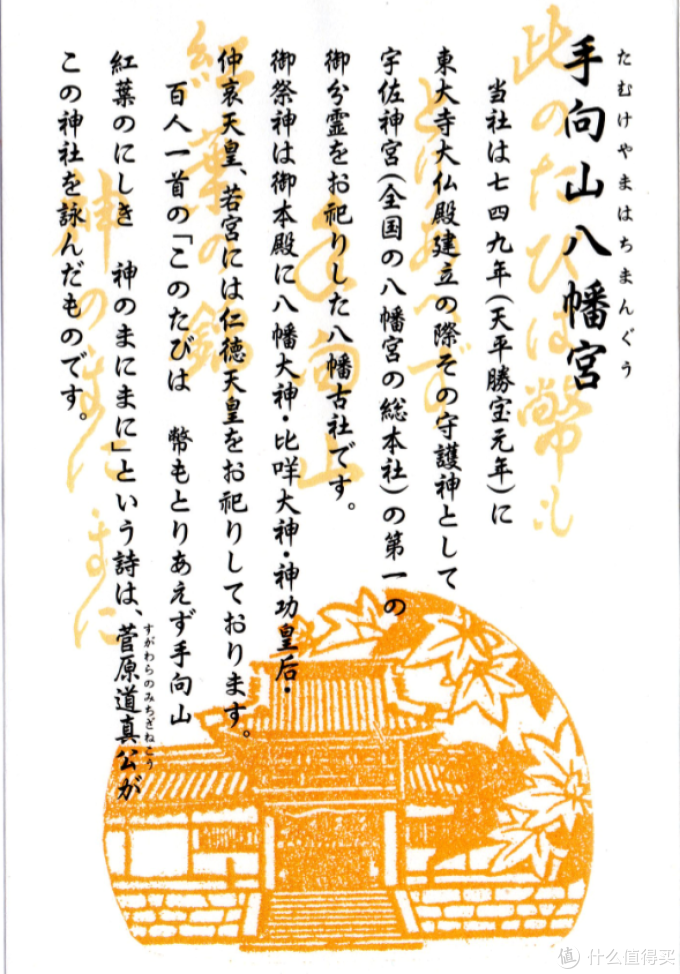 たむけやまはちまんぐう
手向山八幡宮
当社は七四九年(天平勝宝元年)に
東大寺大仏殿建立の際その守護神として
宇佐神宮(全国の八幡宮の総本社)の第一の
御分霊をお祀りした八幡古社です。
御祭神は御本殿に八幡大神・比咩大神・神功皇后・
仲哀天皇、若宮には仁徳天皇をお祀りしております。
百人一首の「このたびは 幣もとりあえず手向山
紅葉のにしき 神のまにまに」という詩は、菅原道真公が
すがわらのみちざねこう
この神社を詠んだものです。
此のたひは幣も
とりあへず
手向山
紅葉の錦
神のまにまに
值 什么值得买